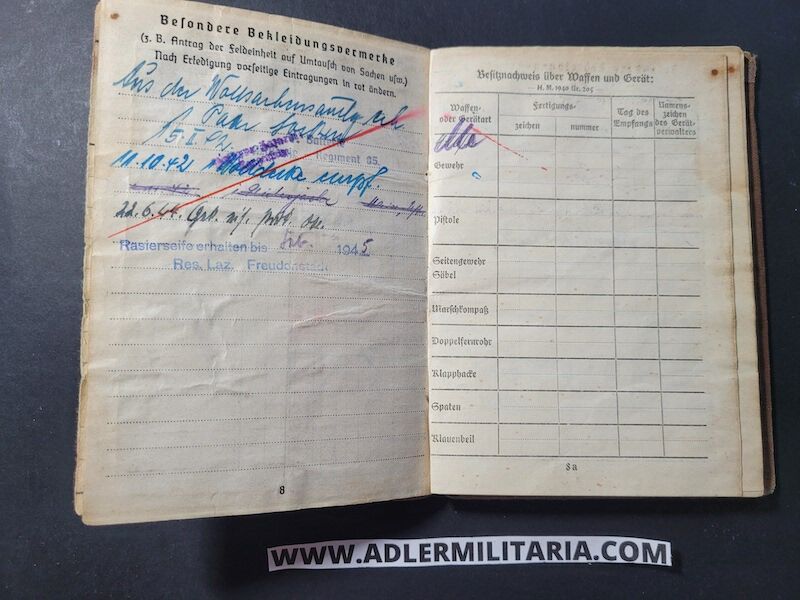 Besondere Bekleidungsvermerke
(z. B. Antrag der Feldeinheit auf Umtausch von Sachen usw.)
Nach Erledigung vorseitige Eintragungen in rot ändern.
Aus der
Paar
15.I.42
Regiment 35.
11.10.42 empf.
22.6.44.
Rasierseife erhalten bis Feb. 1945
Res. Laz. Freudenstadt
8
Besitznachweis über Waffen und Gerät:
— H. M. 1940 Nr. 205
Waffen- oder Geräteart
Fertigungs-
zeichen nummer
Tag des Empfangs
Namenszeichen des Geräteverwalters
Gewehr
Pistole
Seitengewehr
Säbel
Marschkompaß
Doppelfernrohr
Klapphacke
Spaten
Klauenbeil
8a
WWW.ADLERMILITARIA.COM